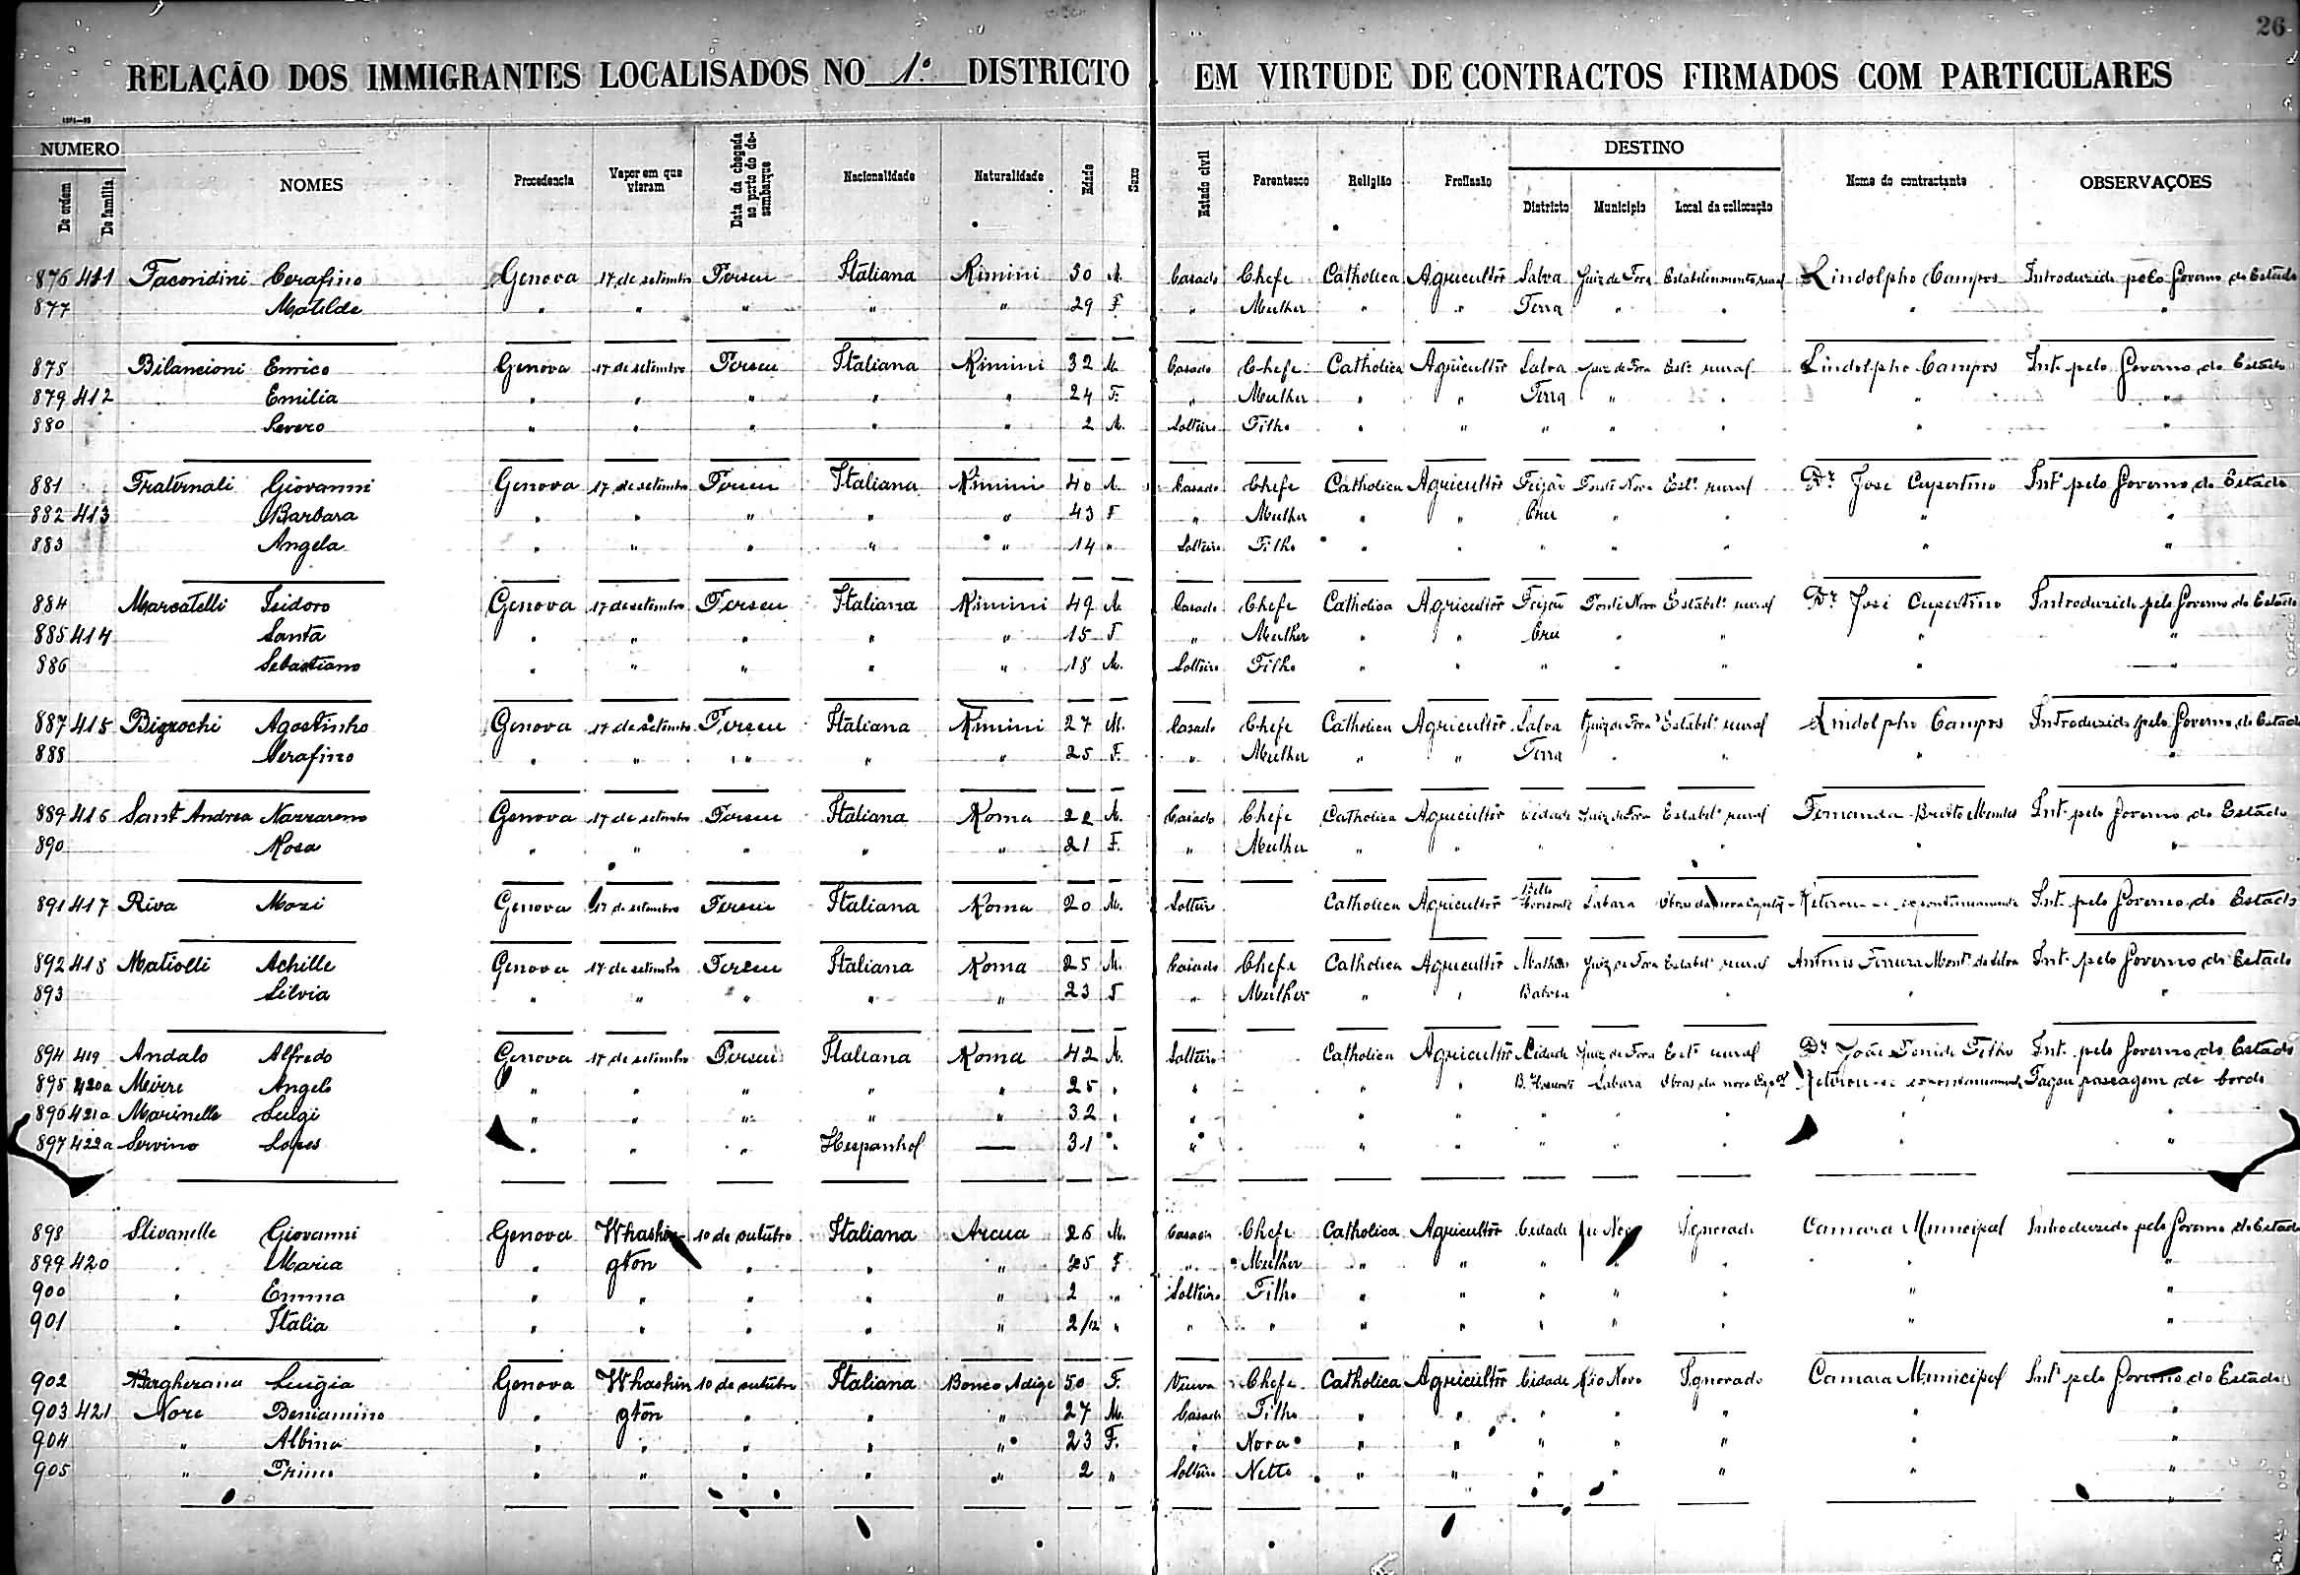 26
RELAÇÃO DOS IMMIGRANTES LOCALISADOS NO 1º DISTRICTO EM VIRTUDE DE CONTRACTOS FIRMADOS COM PARTICULARES
NUMERO
De ordem
De familia
NOMES
Procedencia
Vapor em que vieram
Data da chegada ao porto do desembarque
Nacionalidade
Naturalidade
Edade
Sexo
Estado civil
Parentesco
Religião
Profissão
DESTINO
Districto
Municipio
Local da collocação
Nome do contractante
OBSERVAÇÕES
876 411 Facondini Cerafino Genova 17 de setembro Perseu Italiana Rimini 30 M. Casado Chefe Catholica Agricultôr Salva Juiz de Fora Estabelecimento rural Lindolpho Campos Introduzido pelo Governo do Estado
877 Matilde " " " " " 29 F. " Mulher " " Terra " " " "
875 Bilancioni Enrico Genova 17 de setembro Perseu Italiana Rimini 32 M Casado Chefe Catholica Agricultôr Salva Juiz de Fora Estº rural Lindolpho Campos Intº pelo Governo do Estado
879 412 Emilia " " " " " 24 F. " Mulher " " Terra " " " "
880 Severo " " " " " 2 M. Solteiro Filho " " " " " " "
881 Fraternali Giovanni Genova 17 de setembro Perseu Italiana Rimini 40 M. Casado Chefe Catholica Agricultôr Feijão Ponte Nova Estº rural Dr. José Cupertino Intº pelo Governo do Estado
882 413 Barbara " " " " " 43 F " Mulher " " Cru " " " "
883 Angela " " " " " 14 " Solteiro Filho " " " " " " "
884 Marcatelli Isidoro Genova 17 de setembro Perseu Italiana Rimini 49 M Casado Chefe Catholica Agricultôr Feijão Ponte Nova Estabelº rural Dr. José Cupertino Introduzido pelo Governo do Estado
885 414 Santa " " " " " 15 F " Mulher " " Cru " " " "
886 Sebastiano " " " " " 18 M. Solteiro Filho " " " " " " "
887 415 Bigrochi Agostinho Genova 17 de setembro Perseu Italiana Rimini 27 M. Casado Chefe Catholica Agricultôr Salva Juiz de Fora Estabelº rural Lindolpho Campos Introduzido pelo Governo do Estado
888 Serafino " " " " " 25 F. " Mulher " " Terra " " " "
889 416 Sant Andrea Nazzareno Genova 17 de setembro Perseu Italiana Roma 22 M. Casado Chefe Catholica Agricultôr Cidade Juiz de Fora Estabelº rural Fernanda Brito Mendes Intº pelo Governo do Estado
890 Rosa " " " " " 21 F. " Mulher " " " " " " "
891 417 Riva Mozi Genova 17 de setembro Perseu Italiana Roma 20 M. Solteiro Catholica Agricultôr Bello Horizonte Sabara Obras da nova Capital Retirou-se espontaneamente Intº pelo Governo do Estado
892 418 Matiolli Achille Genova 17 de setembro Perseu Italiana Roma 25 M. Casado Chefe Catholica Agricultôr Mathias Juiz de Fora Estabelº rural Antonio Ferreira Montº da Silva Intº pelo Governo do Estado
893 Silvia " " " " " 23 F " Mulher " " Barbosa " " "
894 419 Andalo Alfredo Genova 17 de setembro Perseu Italiana Roma 42 M. Solteiro Catholica Agricultôr Cidade Juiz de Fora Estº rural Dr. João Penido Filho Intº pelo Governo do Estado
895 420a Angelo " " " " " 25 " " " " B. Horizonte Sabara Obras da nova Capal Retirou-se espontaneamente Pagou passagem de bordo
896 421a Marinello Luigi " " " " " 32 " " " " " " " " "
897 422a Servino Lopes " " " Hespanhol — 31 " " " " " " " " "
898 Slivanelle Giovanni Genova Whashin 10 de outubro Italiana Arcua 26 M. Casado Chefe Catholica Agricultôr Cidade Rio Novo Ignorado Camara Municipal Introduzido pelo Governo do Estado
899 420 " Maria " gtôn " " " 25 F " Mulher " " " " " " "
900 " Emma " " " " " 2 " Solteiro Filho " " " " " " "
901 " Italia " " " " " 2/12 " " " " " " " " " "
902 Bagherana Luigia Genova Whashin 10 de outubro Italiana Bonco Adige 50 F. Viuva Chefe Catholica Agricultôr Cidade Rio Novo Ignorado Camara Municipal Intº pelo Governo do Estado
903 421 Nore Beniamino " gtôn " " " 27 M. Casado Filho " " " " " " "
904 " Albina " " " " " 23 F. " Nora " " " " " " "
905 " Primo " " " " " 2 " Solteiro Netto " " " " " " "